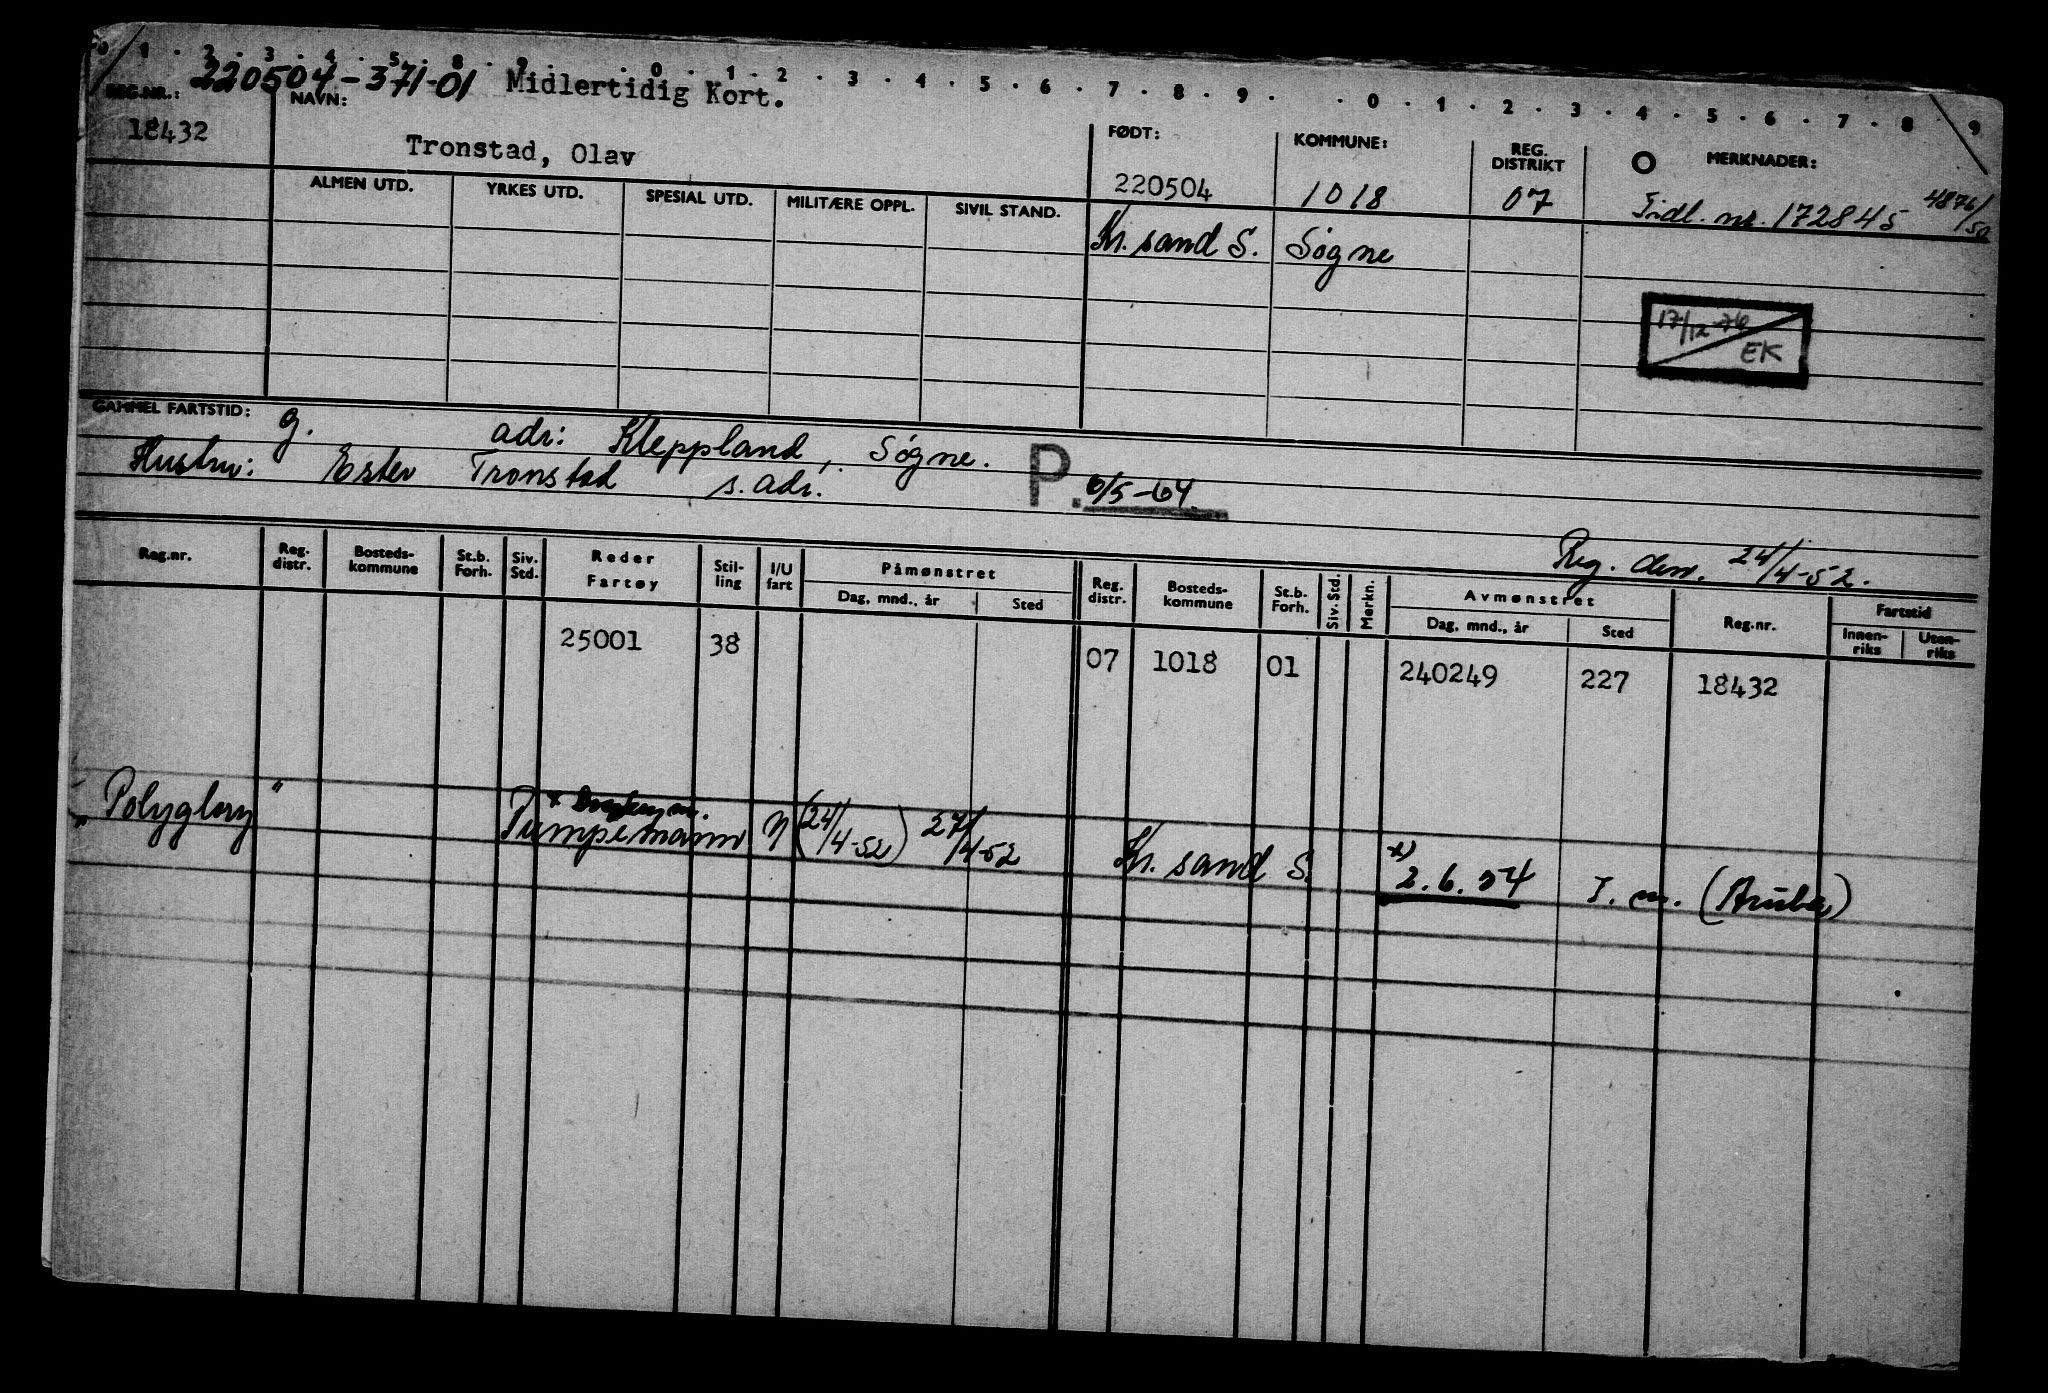 0 1 2 3 4 5 8 9 0 1 2 3 4 5 6 7 8 9 0 1 2 3 4 5 6 7 8 9
220504-371-01 Midlertidig Kort.
REG.NR.: NAVN:
18432 Tronstad, Olav
FØDT: KOMMUNE: REG. DISTRIKT MERKNADER:
220504 1018 07 Tidl. nr. 172845 4876/50
ALMEN UTD. YRKES UTD. SPESIAL UTD. MILITÆRE OPPL. SIVIL STAND.
Kr. sand S. Søgne
17/12-76
EK
GAMMEL FARTSTID: g. adr: Kleppland, Søgne.
Hustru: Ester Tronstad s. adr. P. 6/5-64
Reg. den. 24/4-52.
Reg.nr. Reg. distr. Bosteds-kommune St.b. Forh. Siv. Std. Reder Fartøy Stil-ling I/U fart Påmønstret Dag, mnd., år Sted Reg. distr. Bosteds-kommune St.b. Forh. Siv. Std. Merkn. Avmønstret Dag, mnd., år Sted Reg.nr. Fartstid Innen-riks Uten-riks
25001 38 07 1018 01 240249 227 18432
Polyglory " Pumpemann N (24/4-52) 27/4-52 Kr. sand S. x) 2.6.54 I. m. (Aruba)